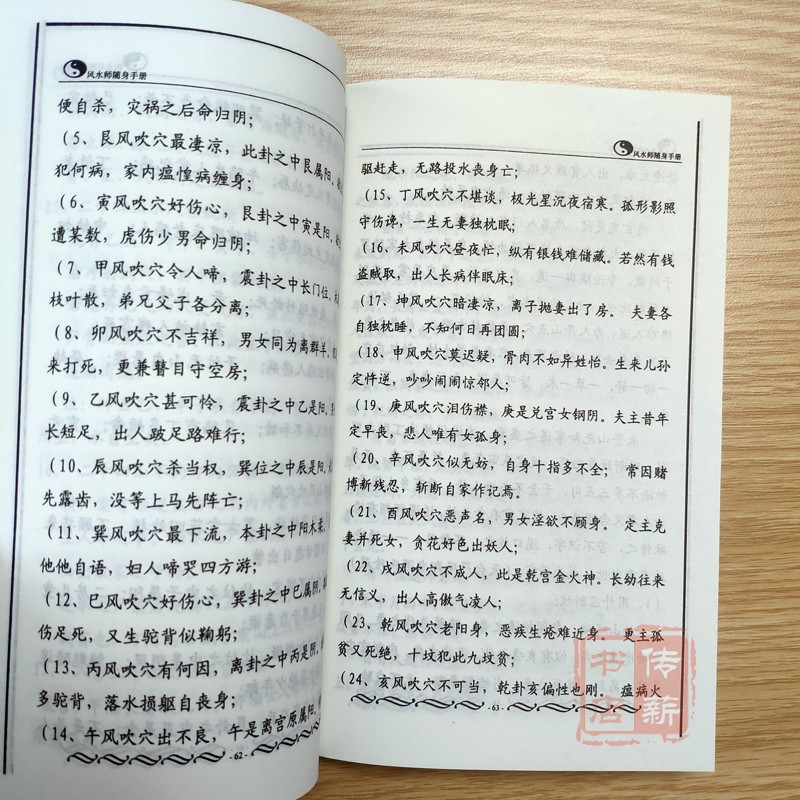 风水师随身手册
便自杀，灾祸之后命归阴；
（5、艮风吹穴最凄凉，此卦之中艮属阳，
犯何病，家内瘟惶病缠身；
（6、寅风吹穴好伤心，艮卦之中寅是阳，
遭某数，虎伤少男命归阴；
（7、甲风吹穴令人啼，震卦之中长门位，
枝叶散，弟兄父子各分离；
（8、卯风吹穴不吉祥，男女同为离群羊，
来打死，更兼瞽目守空房；
（9、乙风吹穴甚可怜，震卦之中乙是阳，
长短足，出人跛足路难行；
（10、辰风吹穴杀当权，巽位之中辰是阳，
先露齿，没等上马先阵亡；
（11、巽风吹穴最下流，本卦之中阳木来，
他他自语，妇人啼哭四方游；
（12、巳风吹穴好伤心，巽卦之中巳属阴，
伤足死，又生驼背似鞠躬；
（13、丙风吹穴有何因，离卦之中丙是阴，
多驼背，落水损躯自丧身；
（14、午风吹穴出不良，午是离宫原属阳，
- 62 -
风水师随身手册
驱赶走，无路投水丧身亡；
（15、丁风吹穴不堪谈，极光星沉夜宿寒。孤形影照
守伤谗，一生无妻独枕眠；
（16、未风吹穴昼夜忙，纵有银钱难储藏。若然有钱
盗贼取，出人长病伴眠床；
（17、坤风吹穴暗凄凉，离子抛妻出了房。 夫妻各
自独枕睡，不知何日再团圆；
（18、申风吹穴莫迟疑，骨肉不如异姓怡。生来儿孙
定忤逆，吵吵闹闹惊邻人；
（19、庚风吹穴泪伤襟，庚是兑宫女钢阴。夫主昔年
定早丧，悲人唯有女孤身；
（20、辛风吹穴似无妨，自身十指多不全； 常因赌
博新残忍，斩断自家作记焉；
（21、酉风吹穴恶声名，男女淫欲不顾身。 定主克
妻并死女，贪花好色出妖人；
（22、戌风吹穴不成人，此是乾宫金火神。长幼往来
无信义，出人高傲气凌人；
（23、乾风吹穴老阳身，恶疾生疮难近身。 更主孤
贫又死绝，十坟犯此九坟贫；
（24、亥风吹穴不可当，乾卦亥偏性也刚。 瘟病火
- 63 -
传新
书店